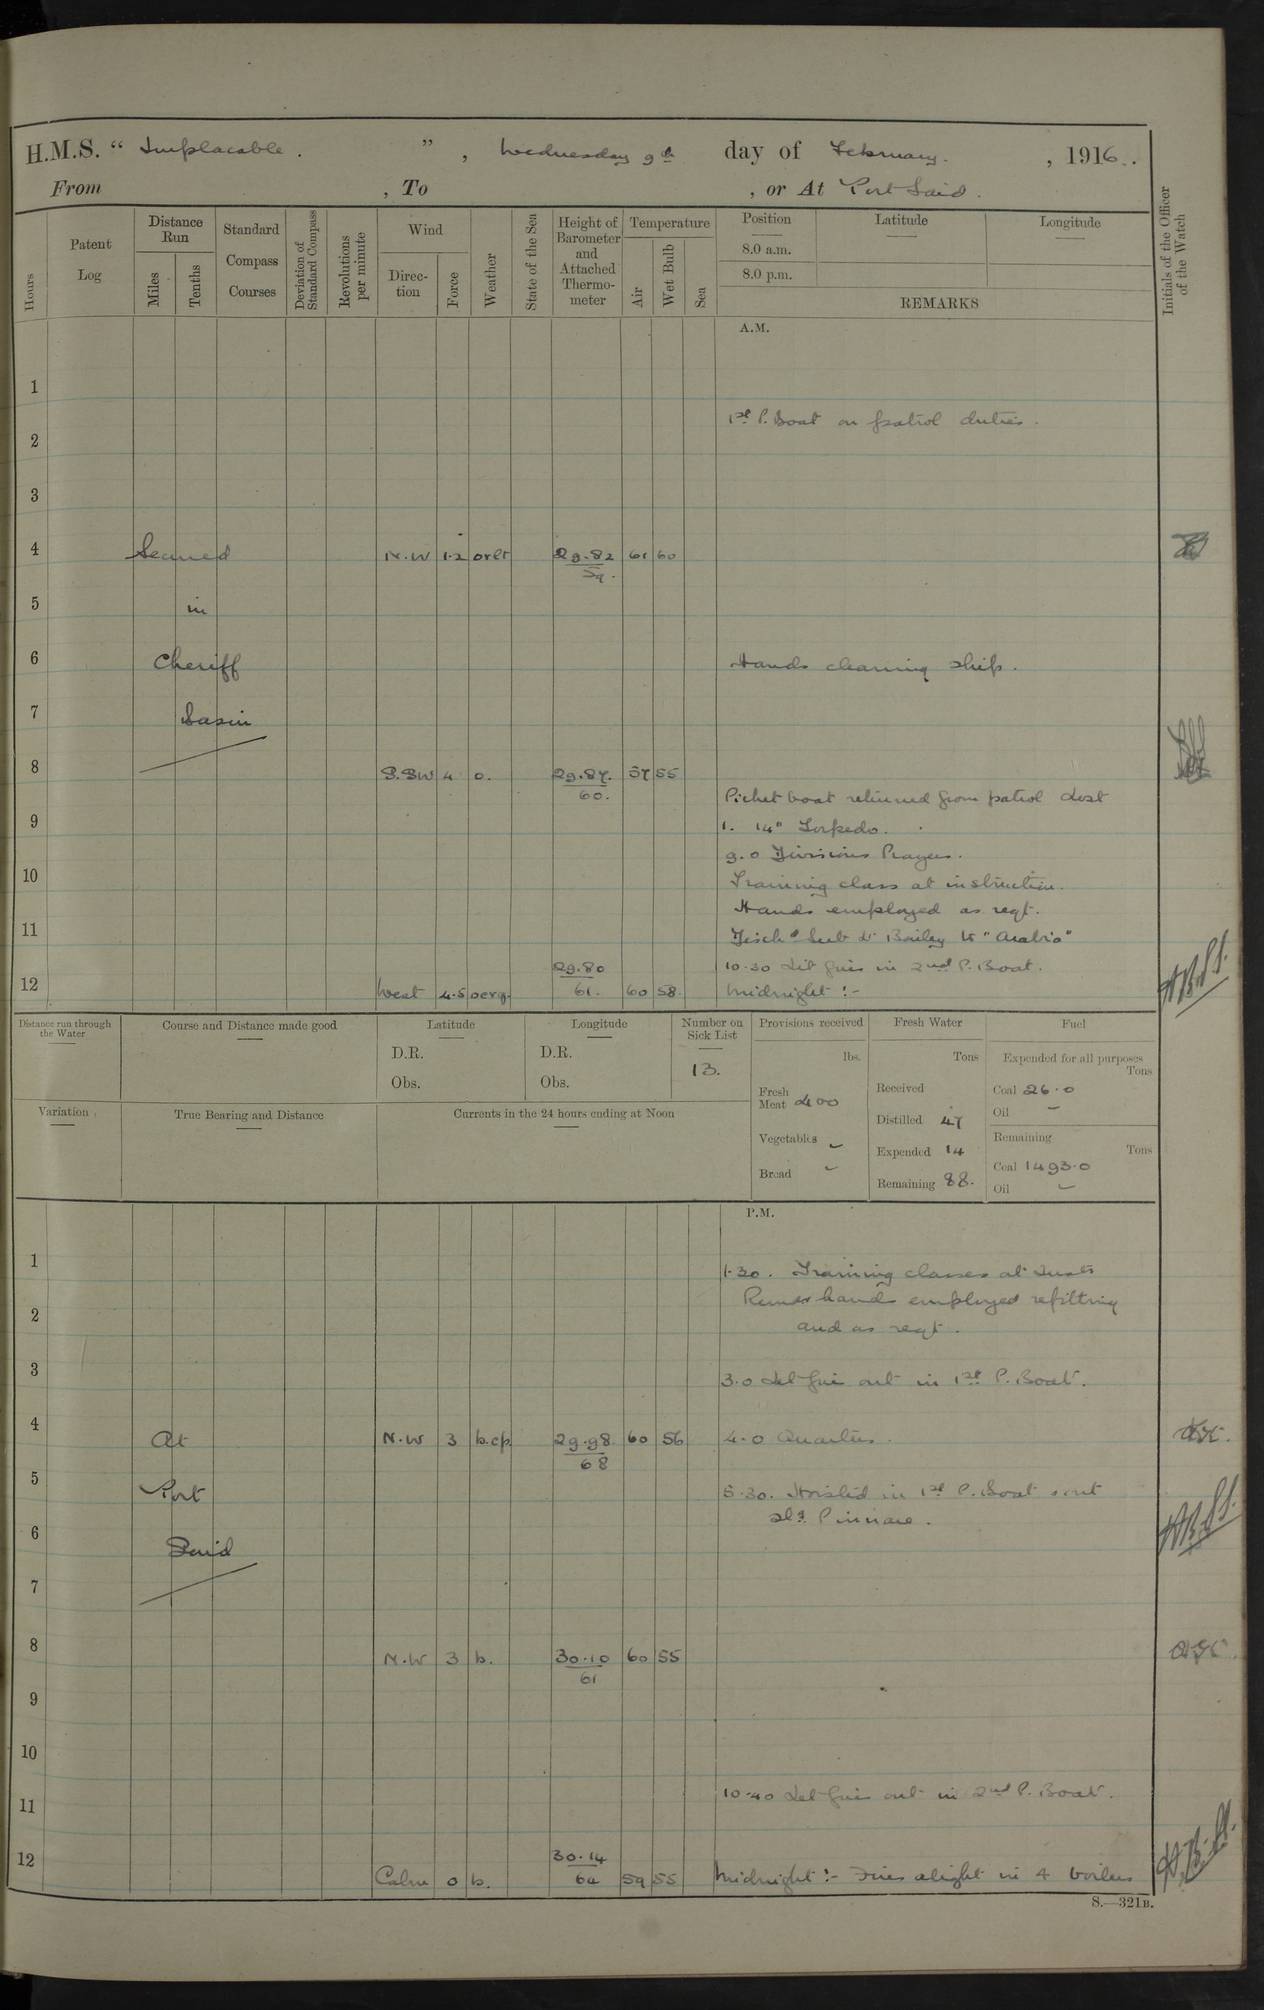 H.M.S. “ Implacable. ” , Wednesday 9th day of February. , 1916.
From , To , or At Port Said.
Hours
Patent Log
Distance Run
Miles
Tenths
Standard Compass Courses
Deviation of Standard Compass
Revolutions per minute
Wind
Direc-tion
Force
Weather
State of the Sea
Height of Barometer and Attached Thermo-meter
Temperature
Air
Wet Bulb
Sea
Position
Latitude
Longitude
8.0 a.m.
8.0 p.m.
REMARKS
Initials of the Officer of the Watch
A.M.
1
1st P. Boat on patrol duties.
2
3
4 Secured N.W 1.2 orlt 29.82 61 60
59.
5 in
6 Cheriff Hands cleaning ship.
7 Basin
8 S.SW 4 o. 29.87. 57 55
60.
Picket boat returned from patrol Lost
9 1. 14" Torpedo.
9.0 Divisions Prayers.
10 Training class at instruction.
Hands employed as reqt.
11 Disch Sub Lt Bailey to "Arabis"
29.80 10.30 Lit fires in 2nd P. Boat.
12 West 4.5 61. 60 58. Midnight :-
Distance run through the Water
Course and Distance made good
Latitude
D.R.
Obs.
Longitude
D.R.
Obs.
Number on Sick List
13.
Provisions received
lbs.
Fresh Meat 400
Vegetables –
Bread –
Fresh Water
Tons
Received
Distilled 47
Expended 14
Remaining 88.
Fuel
Expended for all purposes
Tons
Coal 26.0
Oil –
Remaining
Tons
Coal 1493.0
Oil –
Variation
True Bearing and Distance
Currents in the 24 hours ending at Noon
P.M.
1 1.30. Training classes at Insts
2 Remdr hands employed refitting
and as reqt.
3 3.0 Let fire out in 1st P. Boat.
4 At N.W 3 b.cp. 29.98 60 56 4.0 Quarters.
68
5 Port 5.30. Hoisted in 1st P. Boat & out
6 Said Pinnace.
7
8 N.W 3 b. 30.10 60 55
61
9
10
10.40 Let fires out in 2nd P. Boat.
11
12 30.14
Calm 0 b. 64 59 55 Midnight :- Fires alight in 4 boilers
S.—321B.